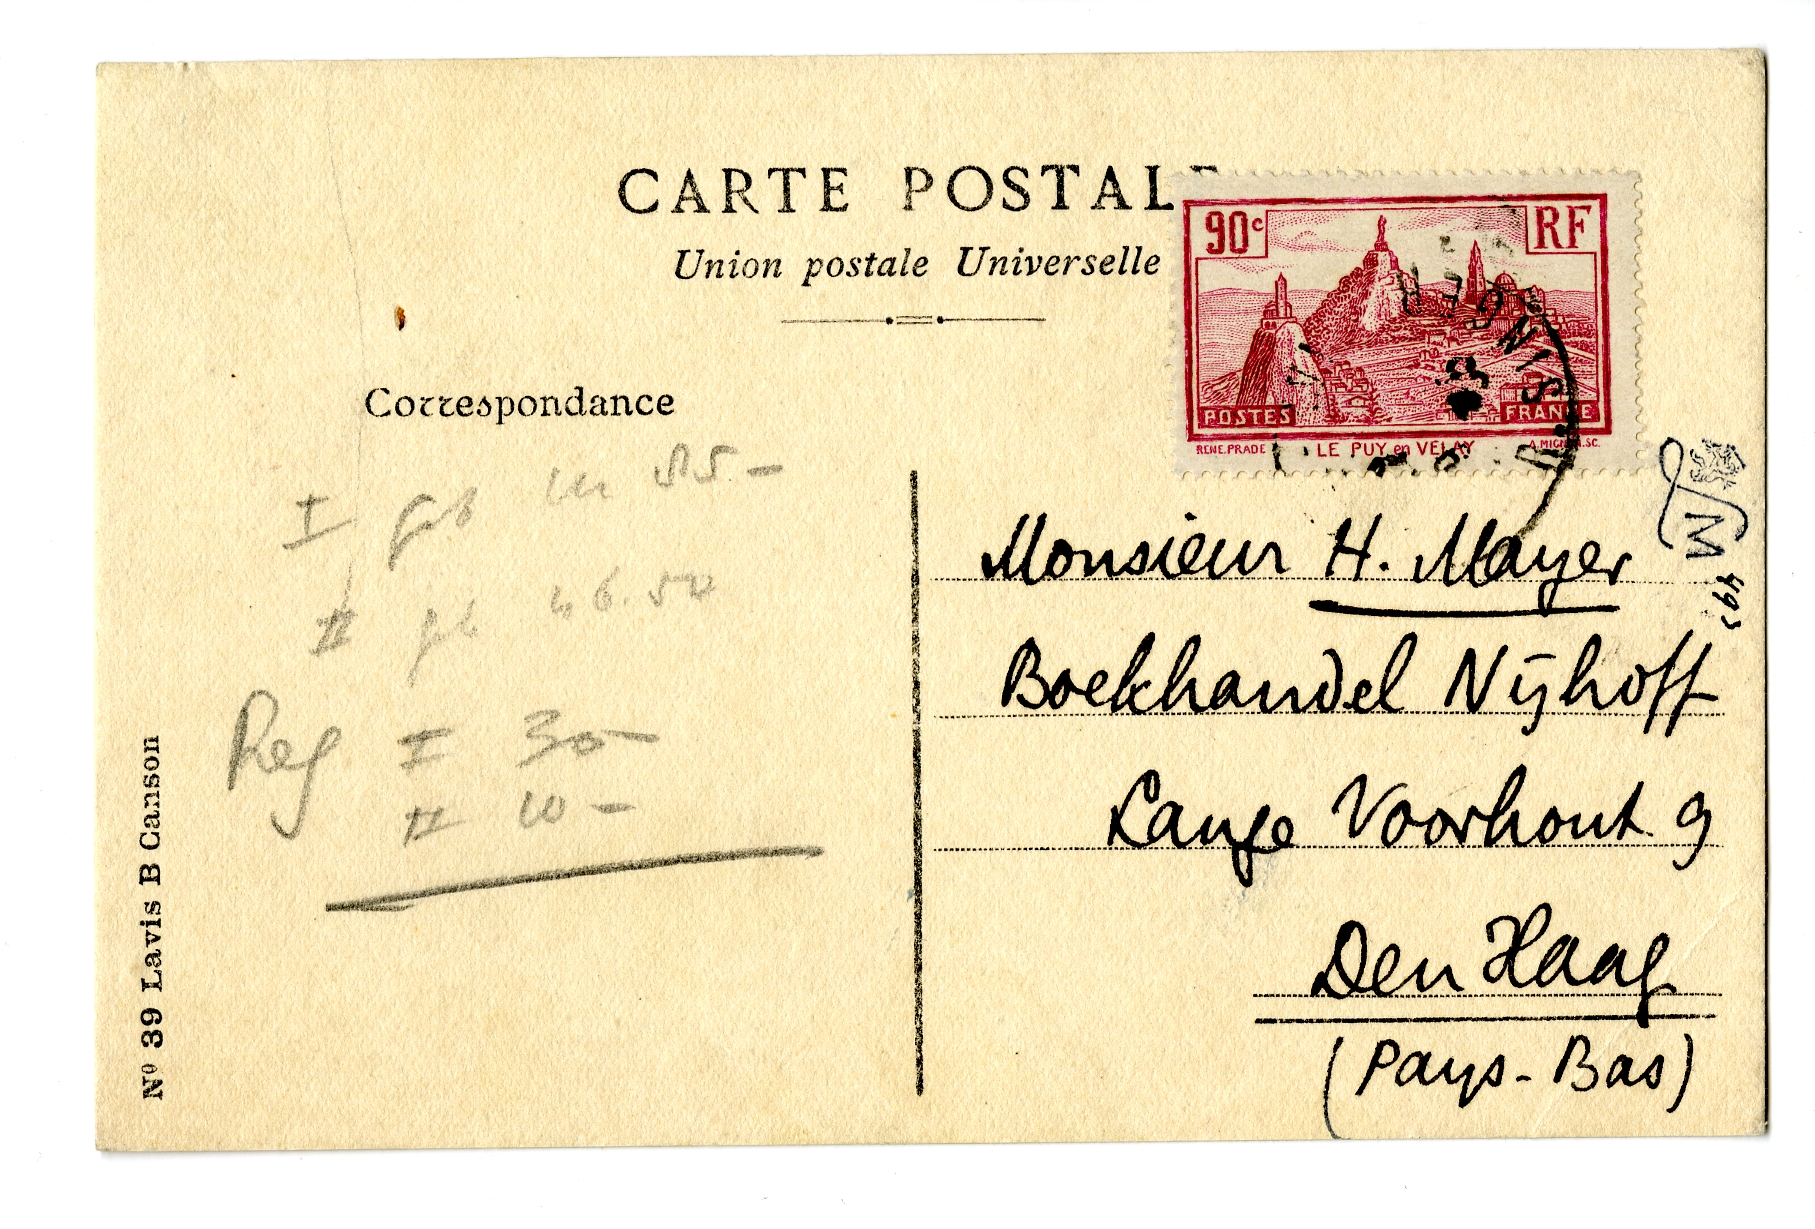 CARTE POSTALE
Union postale Universelle
Correspondance
90c
RF
POSTES
FRANCE
RENE.PRADE
LE PUY en VELAY
A.MIGNON.SC.
R. SINGER
M
493
Monsieur H. Mayer
Boekhandel Nijhoff
Lange Voorhout 9
Den Haag
(Pays-Bas)
I geb in 85.-
II geb 46.50
Reg I 30-
II 10-
Nº 39 Lavis B Canson